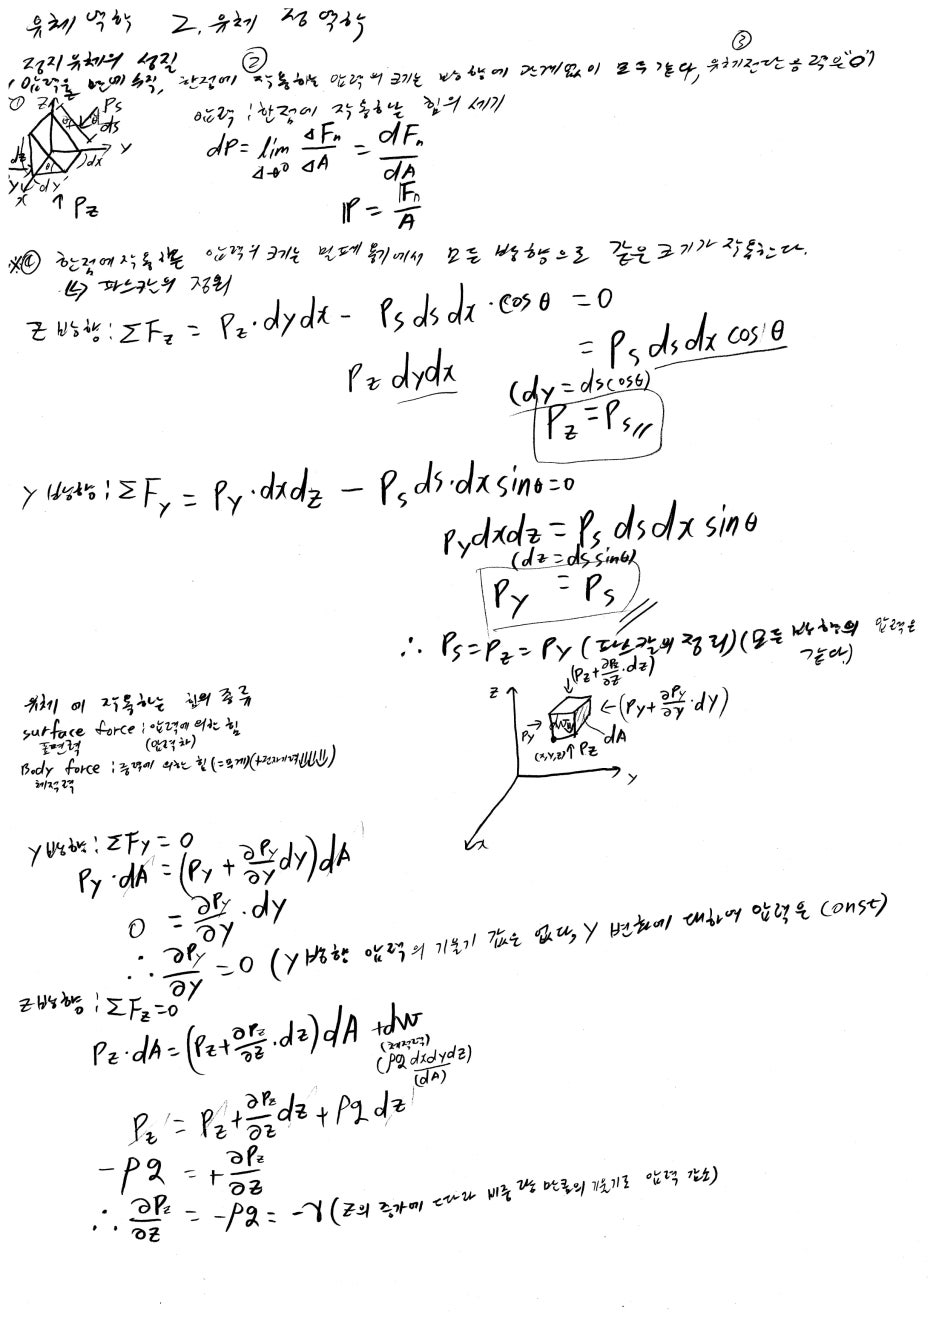 유체 역학 2. 유체 정역학
정지유체의 성질 ②  ③
(압력은 면에 수직, 한점에 작용하는 압력의 크기는 방향에 관계없이 모두 같다, 유체전단응력은 "0")
① z Ps ds θ y dx dz θ Py dy x ↑ Pz
압력 : 한점에 작용하는 힘의 세기
dP = lim ΔA→0 ΔFn/ΔA = dFn/dA
P = Fn/A
※④ 한점에 작용하는 압력의 크기는 밀폐용기에서 모든 방향으로 같은 크기가 작용한다.
↳ 파스칼의 정리
z방향 : ΣFz = Pz·dydx - Ps ds dx·cosθ = 0
Pz dydx = Ps ds dx cosθ
(dy = dscosθ)
Pz = Ps //
y방향 : ΣFy = Py·dxdz - Ps ds·dx sinθ = 0
Py dxdz = Ps ds dx sinθ
(dz = ds sinθ)
Py = Ps //
∴ Ps = Pz = Py (파스칼의 정리) (모든 방향의 압력은 같다)
유체에 작용하는 힘의 종류
surface force : 압력에 의한 힘
표면력 (압력차)
Body force : 중력에 의한 힘 (=무게)
체적력
z ↓(Pz + ∂Pz/∂z·dz)
Py → dW ← (Py + ∂Py/∂y·dy)
(x,y,z) ↑Pz dA
y
x
y방향 : ΣFy = 0
Py·dA = (Py + ∂Py/∂y dy)dA
0 = ∂Py/∂y·dy
∴ ∂Py/∂y = 0 (y방향 압력의 기울기 값은 없다, y 변화에 대하여 압력은 const)
z방향 : ΣFz = 0
Pz·dA = (Pz + ∂Pz/∂z·dz)dA + dW
(체적력)
(ρg dxdydz)
(dA)
Pz = Pz + ∂Pz/∂z dz + ρg dz
-ρg = + ∂Pz/∂z
∴ ∂Pz/∂z = -ρg = -γ (z의 증가에 따라 비중량 만큼의 기울기로 압력 감소)